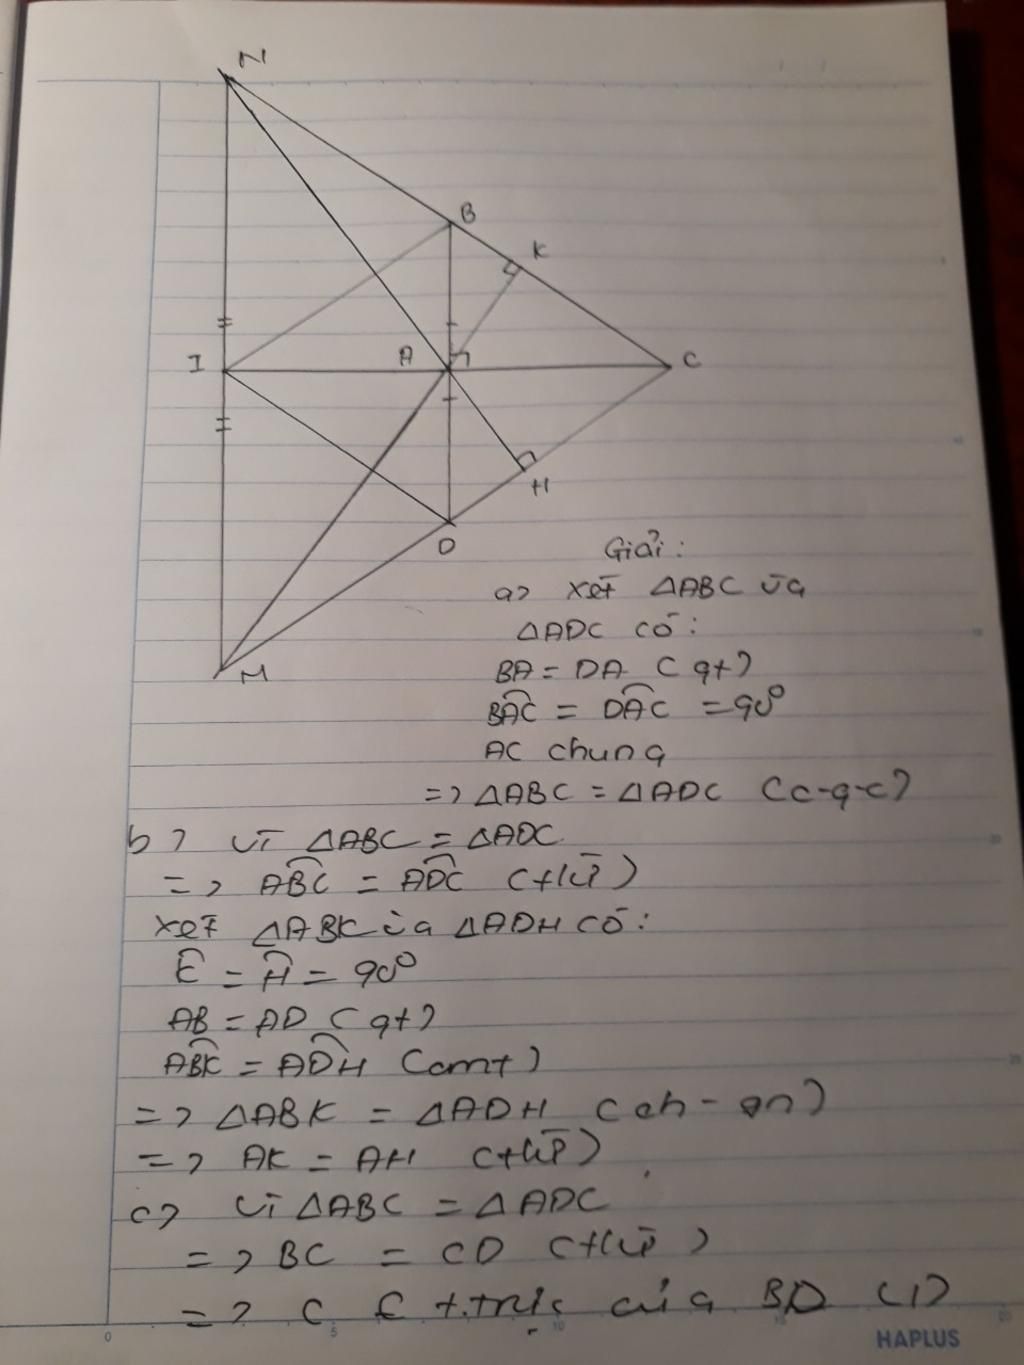 N
B
K
I
A
C
H
D
M
Giải:
a) xét ΔABC và
ΔADC có:
BA = DA (gt)
BAC = DAC = 90°
AC chung
=> ΔABC = ΔADC (c-g-c)
b) vì ΔABC = ΔADC
=> ABC = ADC (tứ)
xét ΔABK và ΔADH có:
K = H = 90°
AB = AD (gt)
ABK = ADH (cmt)
=> ΔABK = ΔADH (ch - gn)
=> AK = AH (tứ)
c) vì ΔABC = ΔADC
=> BC = CD (tứ)
=> C ∈ t.trực của BD (1)
0 5 10 15 20
HAPLUS